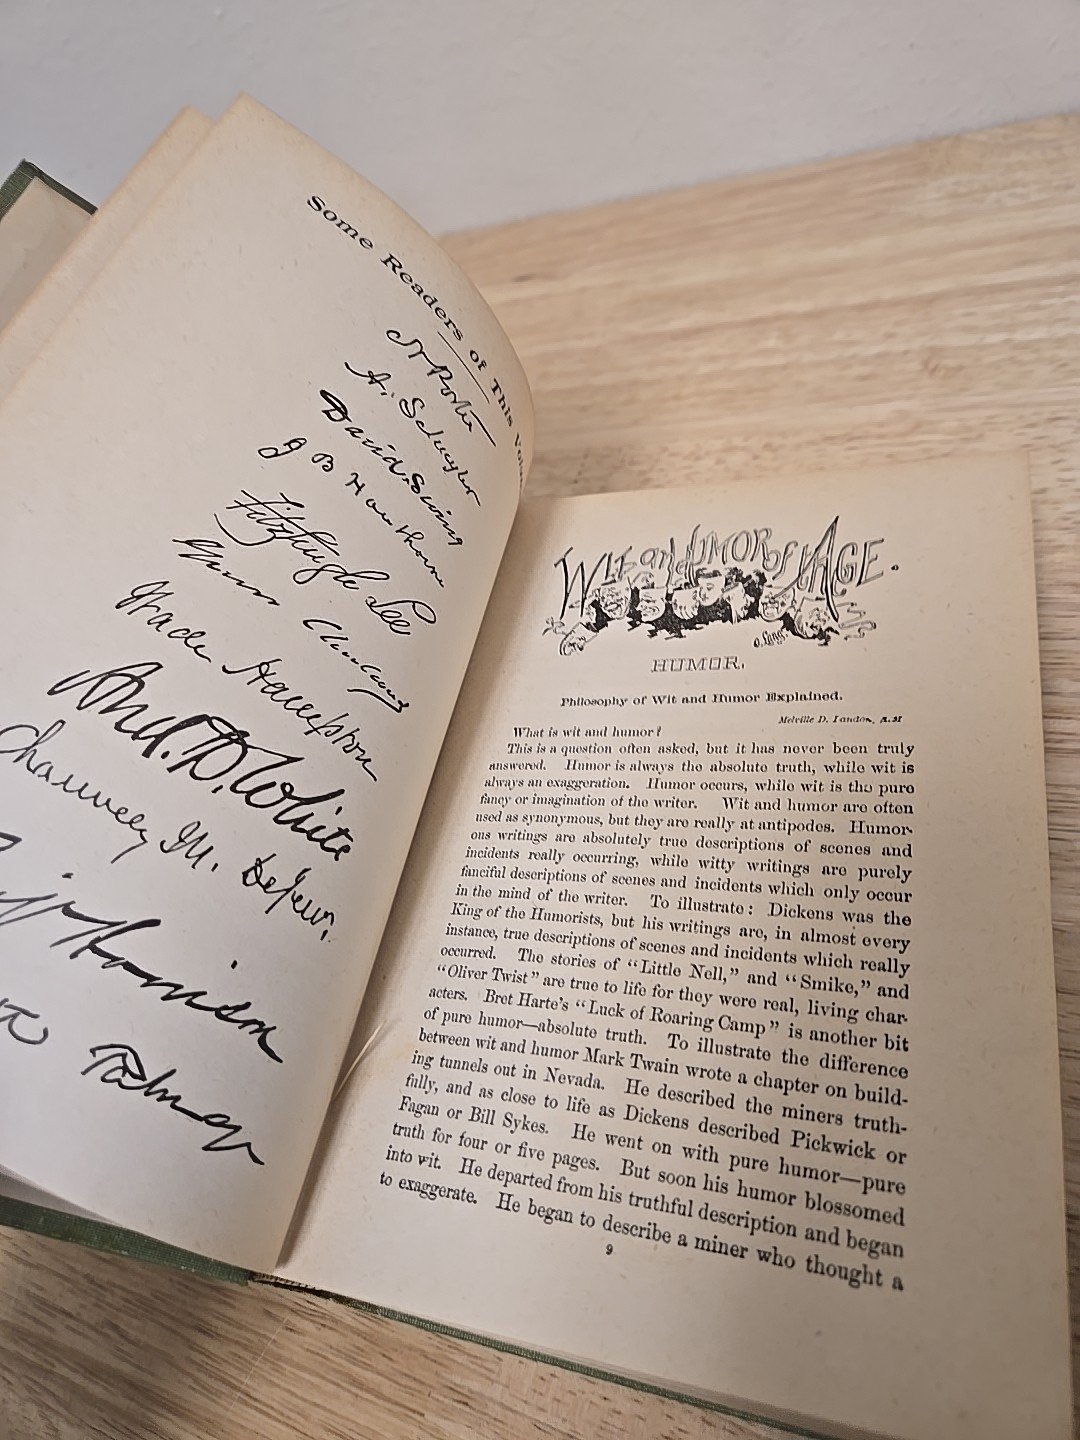 Some Readers of This Volu
A. Schuyler
David Swing
J B Hawthorne
Fitzhugh Lee
Wade Hampton
And. D. White
Chauncey M. Depew.
Harrison
Talmage
WIT AND HUMOR OF THE AGE.
HUMOR.
Philosophy of Wit and Humor Explained.
Melville D. Landon, A.M
What is wit and humor?
This is a question often asked, but it has never been truly
answered. Humor is always the absolute truth, while wit is
always an exaggeration. Humor occurs, while wit is the pure
fancy or imagination of the writer. Wit and humor are often
used as synonymous, but they are really at antipodes. Humor-
ous writings are absolutely true descriptions of scenes and
incidents really occurring, while witty writings are purely
fanciful descriptions of scenes and incidents which only occur
in the mind of the writer. To illustrate: Dickens was the
King of the Humorists, but his writings are, in almost every
instance, true descriptions of scenes and incidents which really
occurred. The stories of "Little Nell," and "Smike," and
"Oliver Twist" are true to life for they were real, living char-
acters. Bret Harte's "Luck of Roaring Camp" is another bit
of pure humor—absolute truth. To illustrate the difference
between wit and humor Mark Twain wrote a chapter on build-
ing tunnels out in Nevada. He described the miners truth-
fully, and as close to life as Dickens described Pickwick or
Fagan or Bill Sykes. He went on with pure humor—pure
truth for four or five pages. But soon his humor blossomed
into wit. He departed from his truthful description and began
to exaggerate. He began to describe a miner who thought a
9